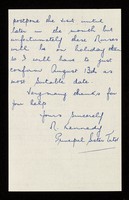 postpone the visit until
later in the month but
unfortunately these Nurses
will be on holiday then
so I will have to just
confirm August 13th as
most suitable date.
Very many thanks for
your help
Yours Sincerely
R Kennedy
Principal Sister Tutor